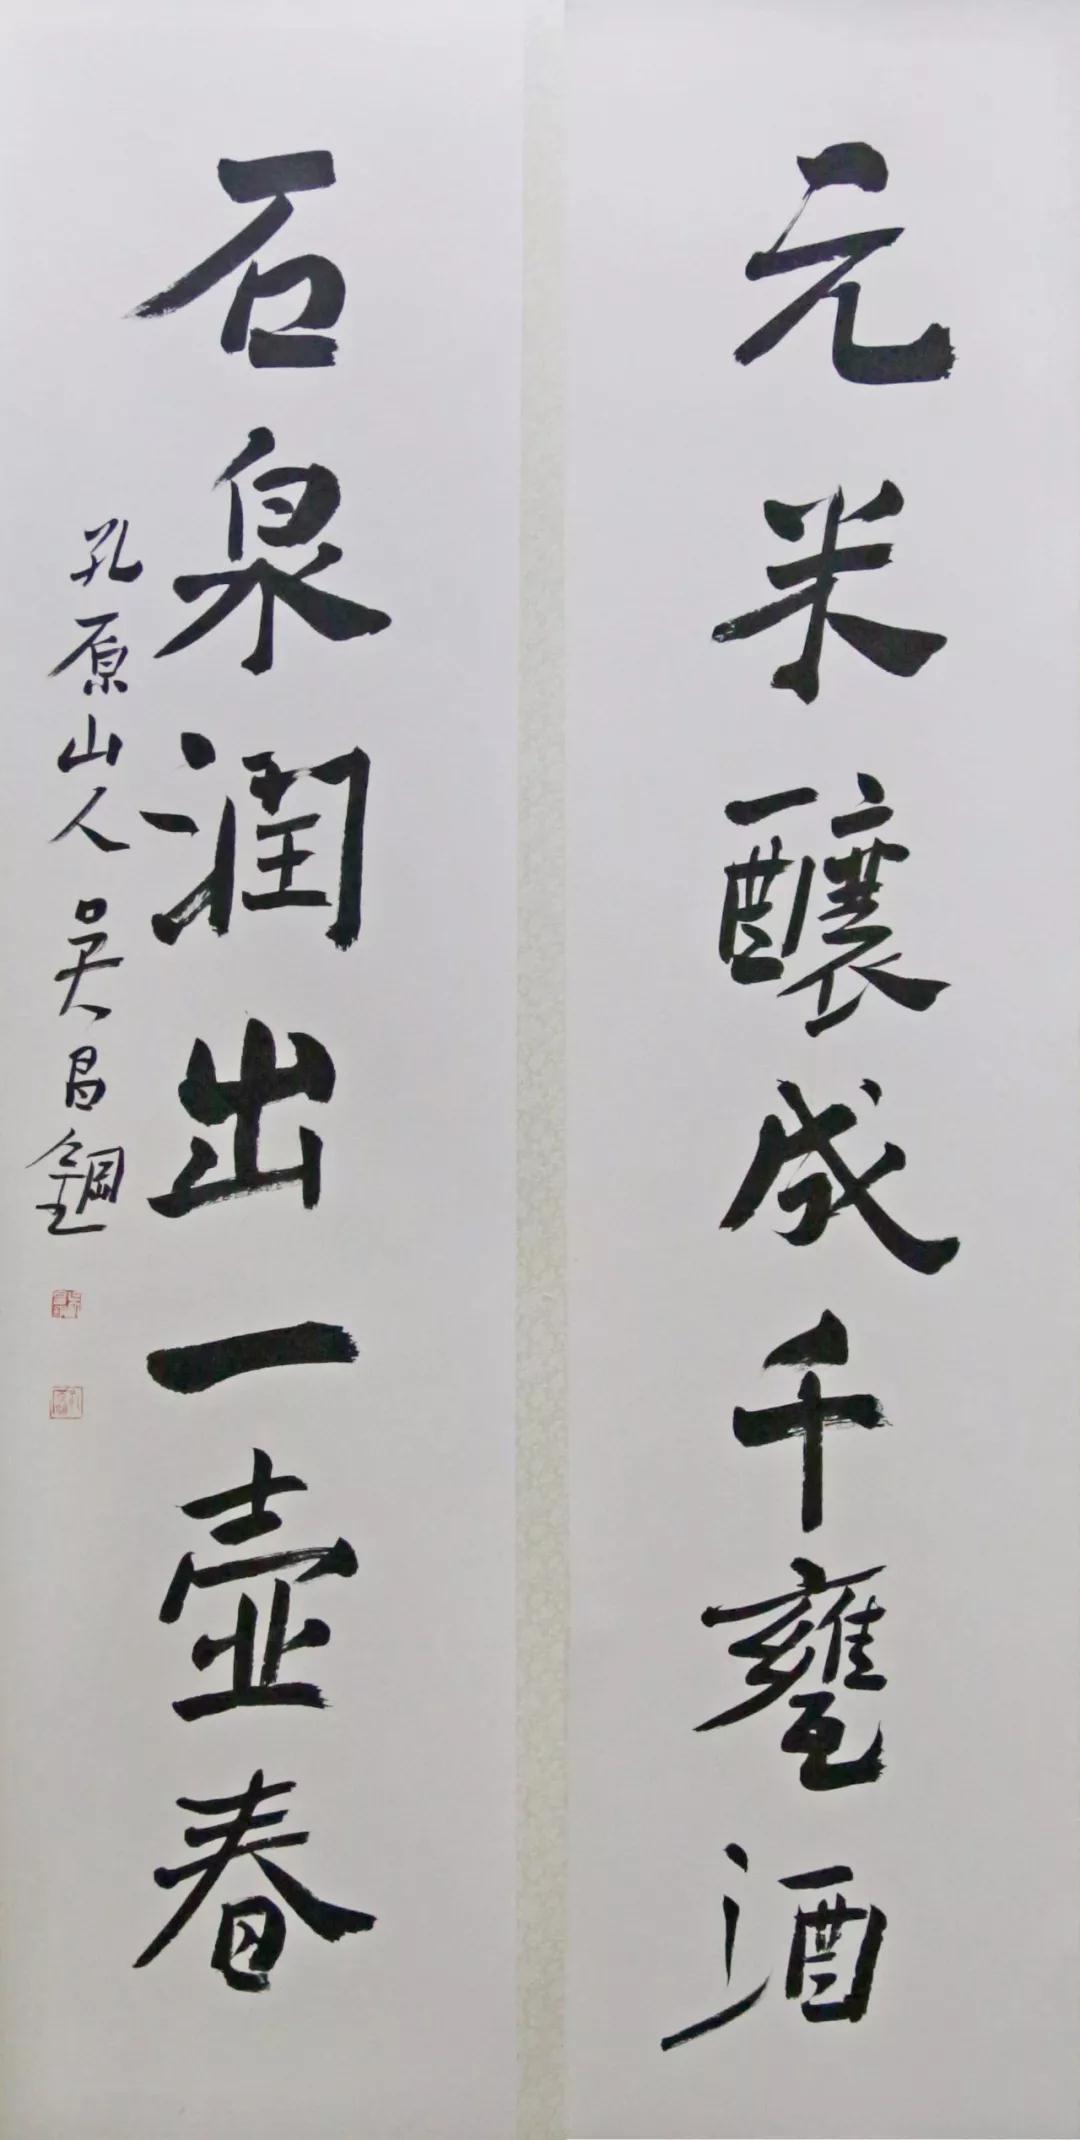 元米釀成千甕酒
石泉润出一壶春
孔原山人吴昌鋼